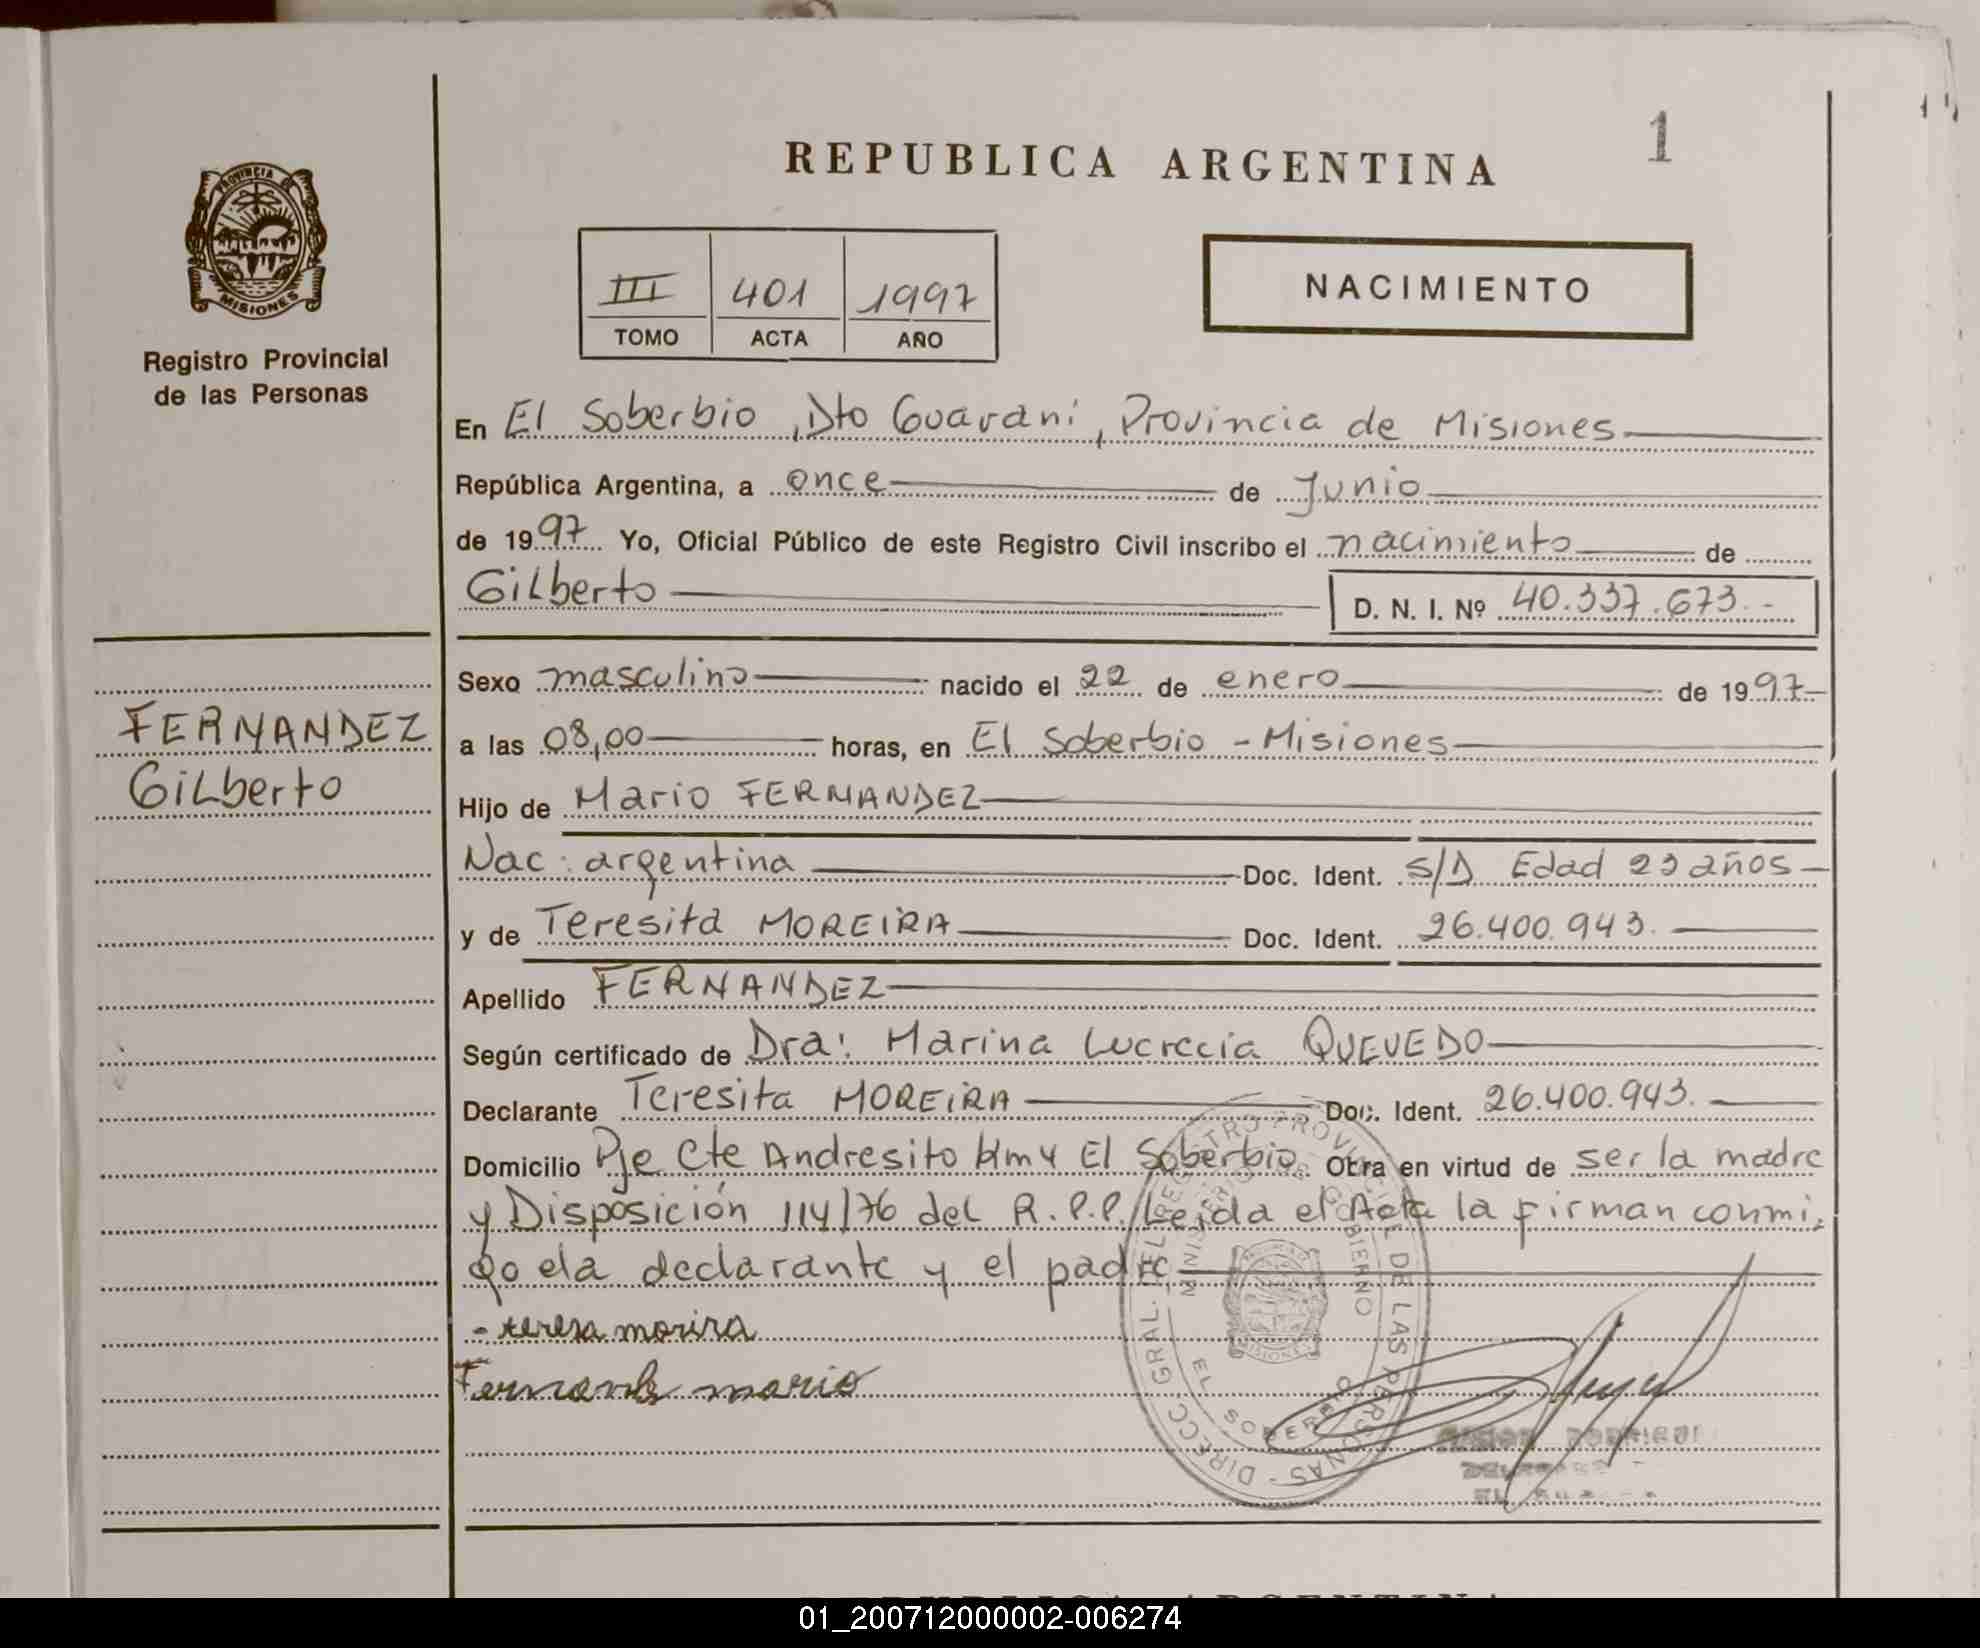 REPUBLICA ARGENTINA
1
PROVINCIA DE
MISIONES
Registro Provincial
de las Personas
III 401 1997
TOMO ACTA AÑO
NACIMIENTO
En El Soberbio, Dto Guaraní, Provincia de Misiones
República Argentina, a once de Junio
de 1997 Yo, Oficial Público de este Registro Civil inscribo el nacimiento de
Gilberto D. N. I. Nº 40.337.673.-
FERNANDEZ
Gilberto
Sexo masculino nacido el 22 de enero de 1997
a las 08,00 horas, en El Soberbio - Misiones
Hijo de Mario FERNANDEZ
Nac: argentina Doc. Ident. S/D Edad 23 años
y de Teresita MOREIRA Doc. Ident. 26.400.943.
Apellido FERNANDEZ
Según certificado de Dra: Marina Lucrecia QUEVEDO
Declarante Teresita MOREIRA Doc. Ident. 26.400.943.
Domicilio Pje Cte Andresito Km 4 El Soberbio Obra en virtud de ser la madre
y Disposición 114/76 del R.P.P. Leida el Acta la firman conmi-
go la declarante y el padre
- teresa morira
Fernandz mario
DIRECC. GRAL. DEL REGISTRO PROVINCIAL DE LAS PERSONAS
MINISTERIO DE GOBIERNO
EL SOBERBIO
MISIONES
REPUBLICA ARGENTINA
01_200712000002-006274